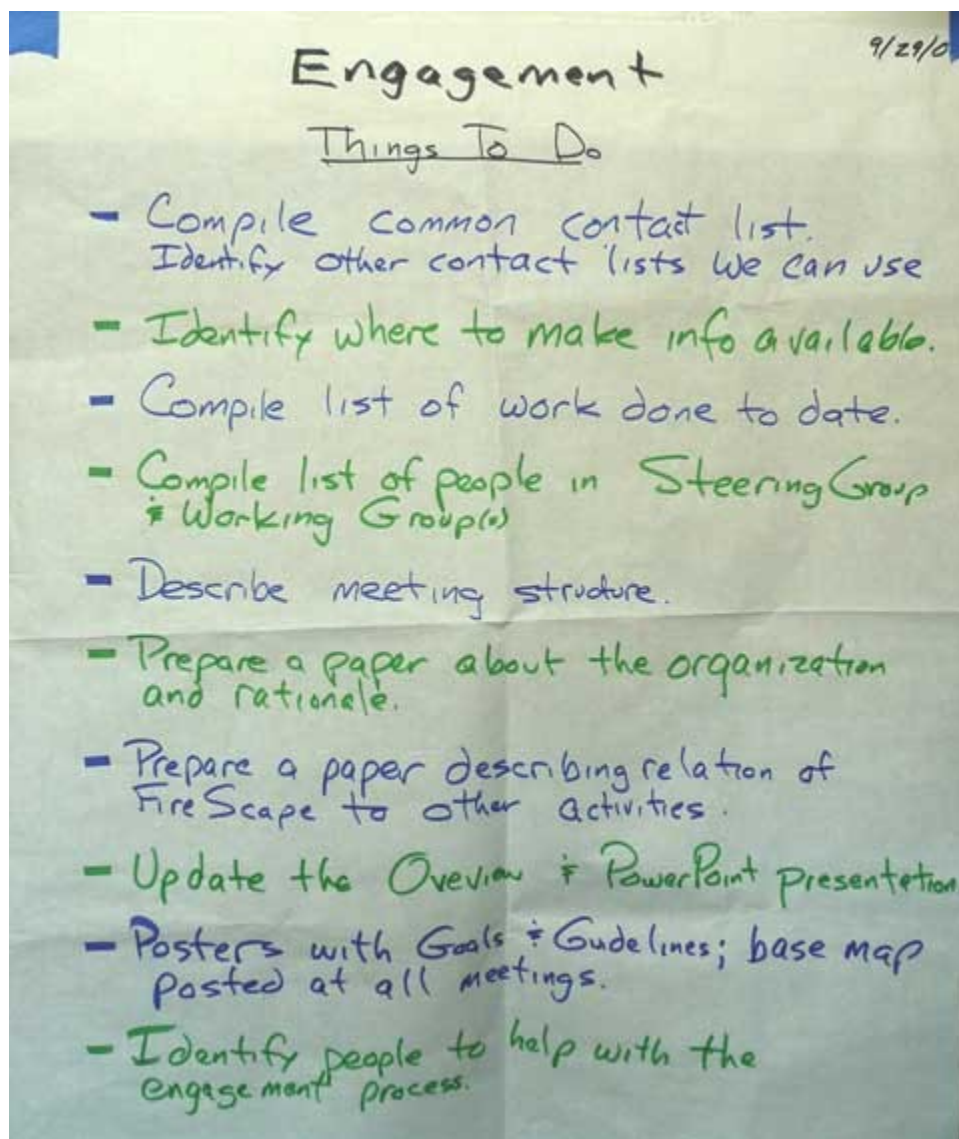 9/29/0
Engagement
Things To Do
- Compile common contact list.
Identify other contact lists we can use
- Identify where to make info available.
- Compile list of work done to date.
- Compile list of people in Steering Group
& Working Group(s)
- Describe meeting structure.
- Prepare a paper about the organization
and rationale.
- Prepare a paper describing relation of
FireScape to other activities.
- Update the Oveview & PowerPoint presentation
- Posters with Goals & Gudelines; base map
posted at all meetings.
- Identify people to help with the
engagement process.